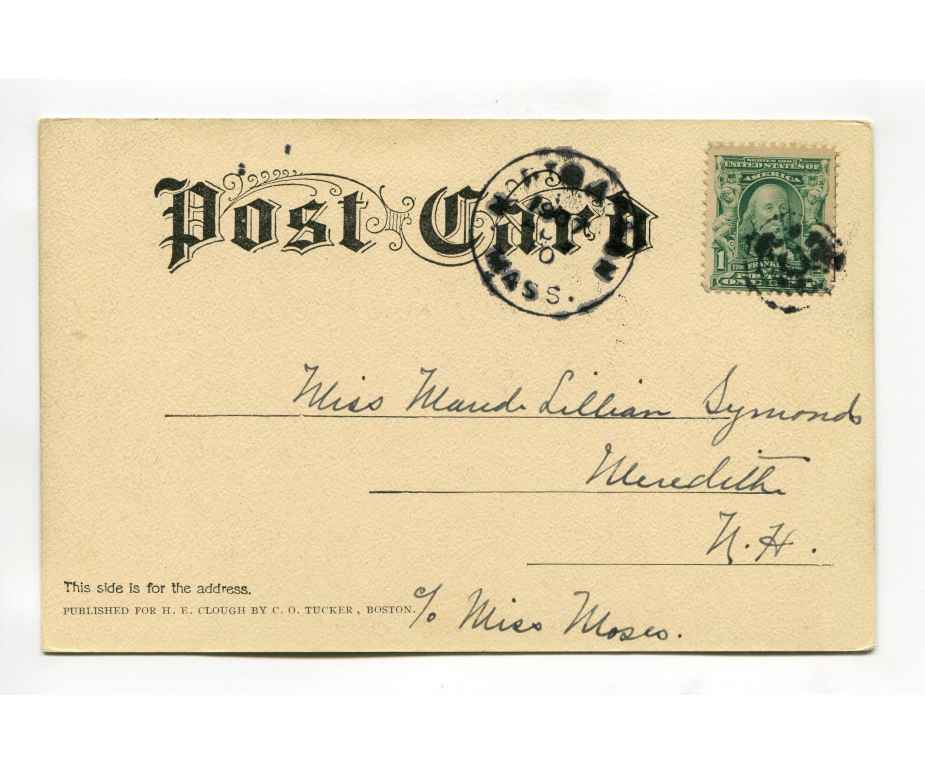 Post Card
MASS.
SERIES 1902
UNITED STATES OF
AMERICA
1
Miss Maude Lillian Symonds
Meredith
N. H.
This side is for the address.
PUBLISHED FOR H. E. CLOUGH BY C. O. TUCKER, BOSTON.
c/o Miss Moses.